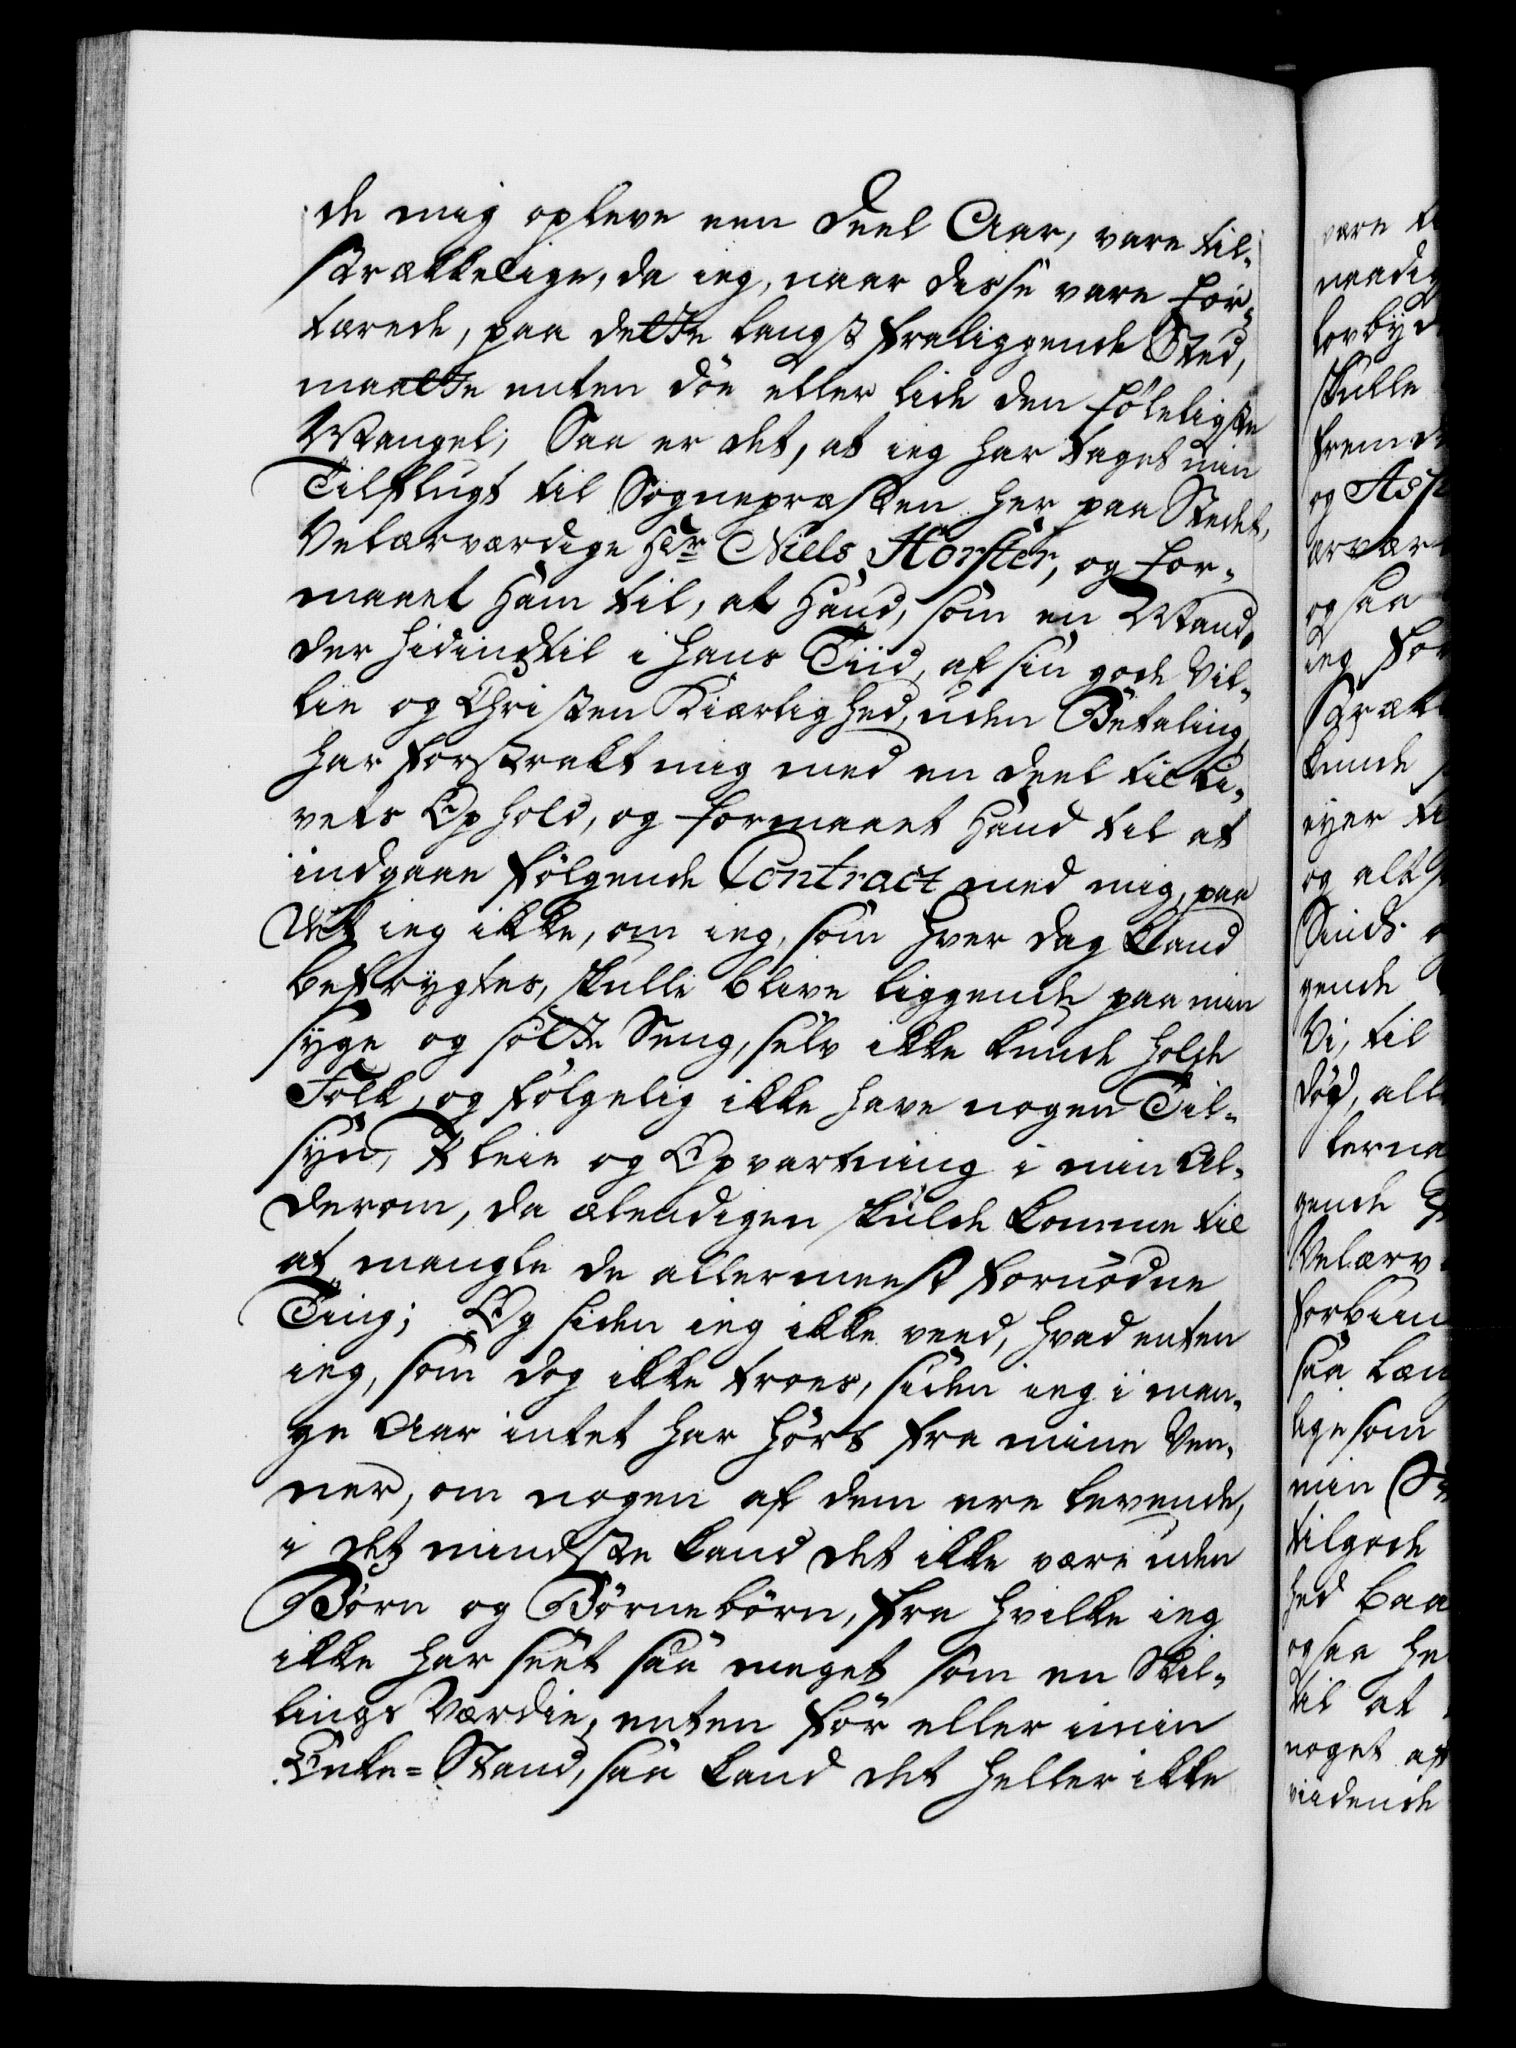 de mig opleve een deel Aar, vare til-
strækkelige, da ieg, naar disse vare for-
tærede, paa dette langt fraliggende Sted,
maatte enten döe eller lide den föleligste
Mangel; Saa er det, at ieg har taget min
Tilflugt til Sognepræsten her paa Stedet,
Velærværdige Hr Niels Hörster, og for-
maaet ham til, at hand, som en Mand,
der hidindtil i hans Tiid, af sin gode Vil-
lie og Christen Kiærlighed, uden Betaling,
har forstrakt mig med en deel til Li-
vets Ophold, og formaaet hand til at
indgaae fölgende Contract med mig, paa
det ieg ikke, om ieg, som hver dag kand
befrygtes, skulle blive liggende paa min
syge og sotte Seng, selv ikke kunde holde
Folk, og fölgelig ikke have nogen Til-
syn, Pleie og Opvartning i min Al-
derom, da elendigen skulde komme til
at mangle de allermeest fornödne
Ting; Og siden ieg ikke veed, hvad enten
ieg, som dog ikke troes, siden ieg i man-
ge Aar intet har hört fra mine Ven-
ner, om nogen af dem ere levende,
i det mindste kand det ikke være uden
Börn og Börnebörn, fra hvilke ieg
ikke har seet saa meget som en Skil-
lings Værdie, enten för eller i min
Enke-Stand, saa kand det heller ikke
være
naadig
forbyd
skulle
fremde
og Ass
ærvær
ogsaa
ieg for
kunde
eyer
og alt
Sinds
gende
Vi, til
död, all
gende
Velærv
forbun
saa læn
lige som
min
tilgode
hed baa
ogsaa he
til at
noget af